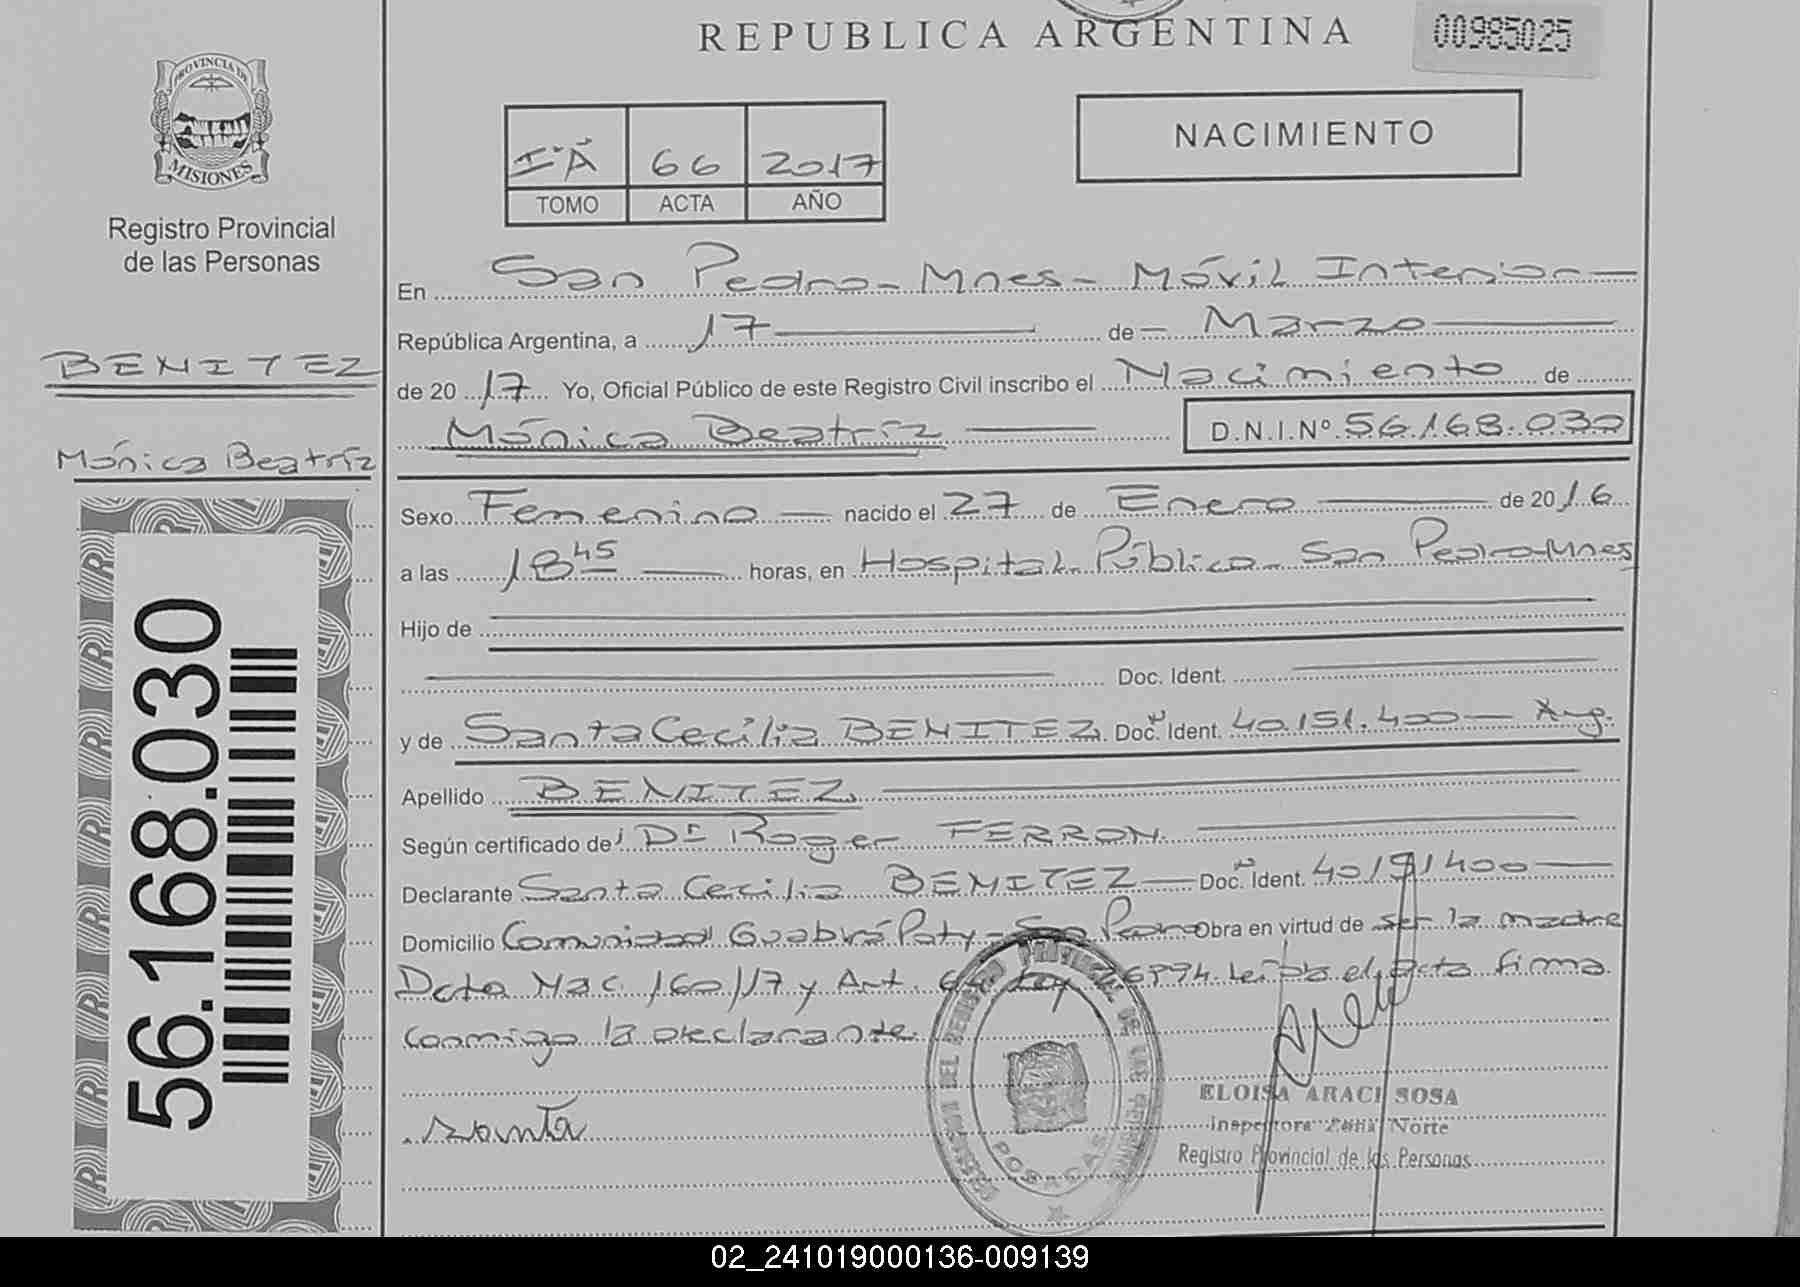 REPUBLICA ARGENTINA
00985025
PROVINCIA DE
MISIONES
Registro Provincial
de las Personas
BENITEZ
Mónica Beatríz
56.168.030
I°A 66 2017
TOMO ACTA AÑO
NACIMIENTO
En San Pedro - Mnes - Móvil Interior
República Argentina, a 17 de Marzo
de 2017 Yo, Oficial Público de este Registro Civil inscribo el Nacimiento de
Mónica Beatríz D.N.I.Nº 56.168.030
Sexo Femenino nacido el 27 de Enero de 2016
a las 18 45 horas, en Hospital Público - San Pedro - Mnes
Hijo de
Doc. Ident.
y de Santa Cecilia BENITEZ Doc. Ident. 40.151.400 - Arg.
Apellido BENITEZ
Según certificado de Dr Roger FERRON
Declarante Santa Cecilia BENITEZ Doc. Ident. 40151400
Domicilio Comunidad Guabirá Poty - San Pedro Obra en virtud de ser la madre
Dcto Nac. 160/17 y Art. Ley Leída el acta firma
conmigo la declarante.
Santa
REGISTRO PROVINCIAL DE LAS PERSONAS
POSADAS
ELOISA ARACI SOSA
Inspectora Zona Norte
Registro Provincial de las Personas
02_241019000136-009139